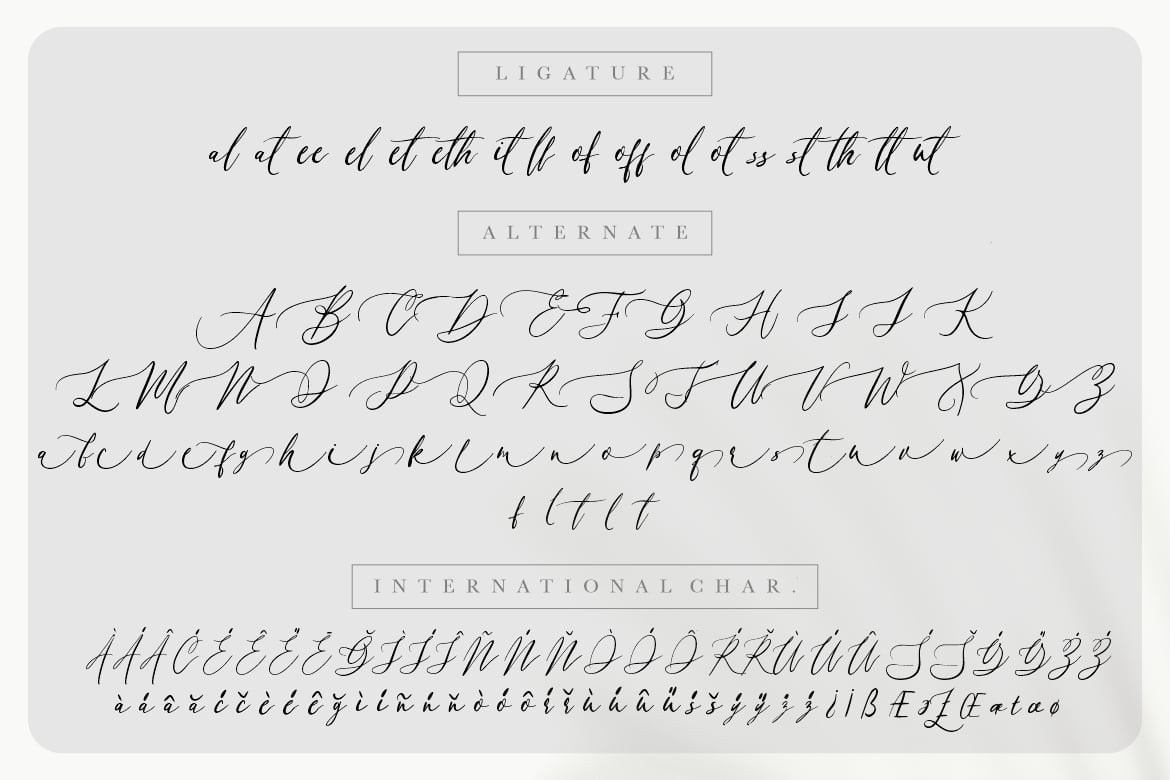 LIGATURE
al at ee el et eth it ff of off ol ot ss st th tt ut
ALTERNATE
A B C D E F G H I J K
L M N O P Q R S T U V W X Y Z
a b c d e f g h i j k l m n o p q r s t u v w x y z
f l t l t
INTERNATIONAL CHAR.
À Á Â Ć É Ê Ë È Ğ Ì Í Î Ñ Ń Ň Ò Ó Ô Ŕ Ř Ù Ú Û Ś Š Ý Ÿ Ż Ź
à á â ă ć č è é ê ğ ì í ñ ń ň ò ó ô ŕ ř ù ú û ű ś š ý ÿ ż ź ß Æ Œ æ œ ø